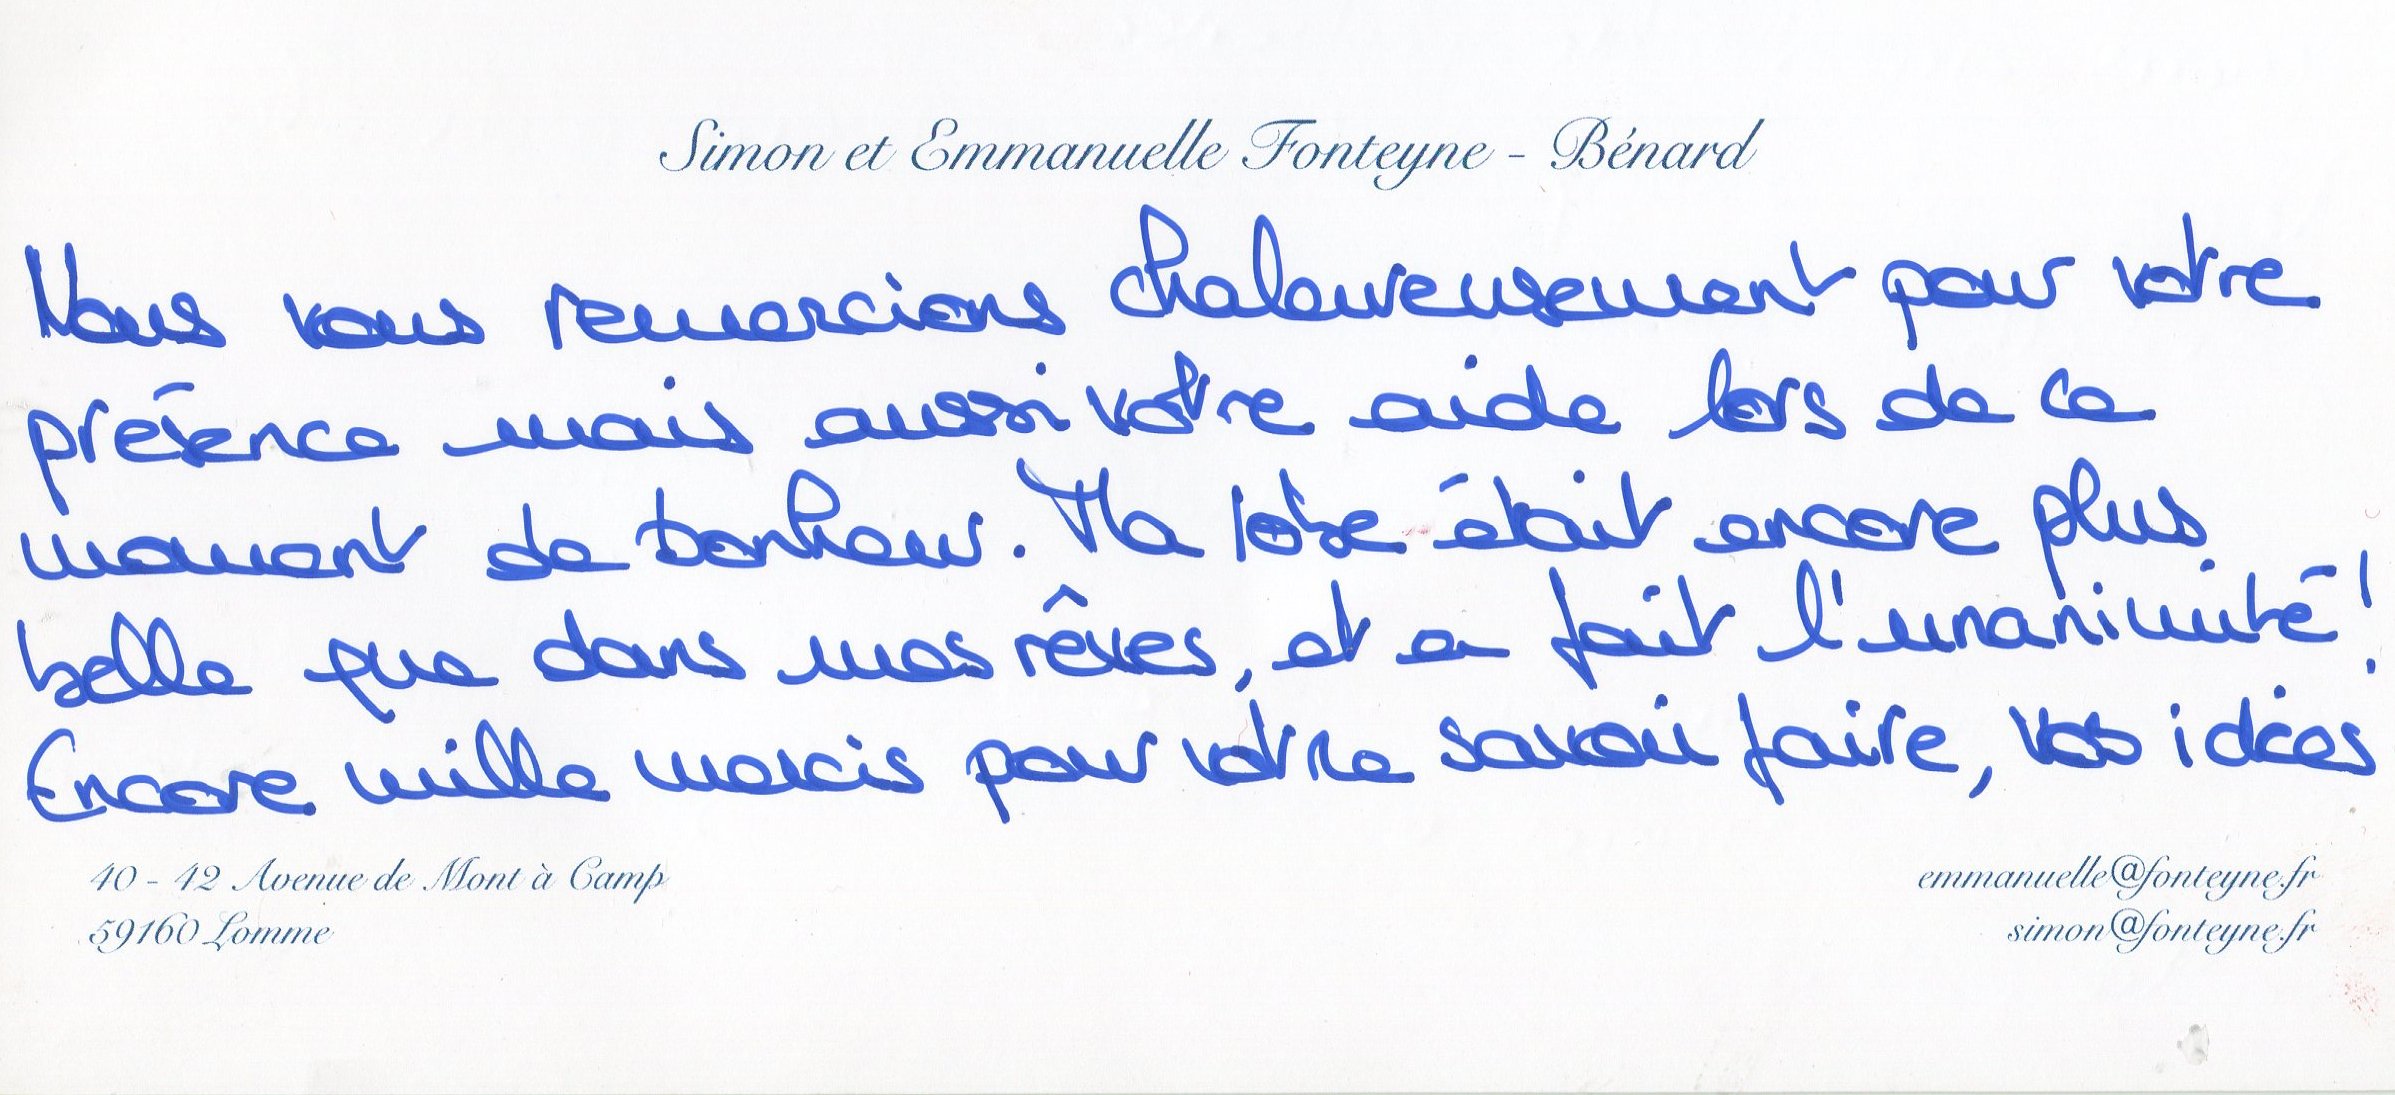 Simon et Emmanuelle Fonteyne - Bénard
Nous vous remercions chaleureusement pour votre
présence mais aussi votre aide lors de ce
moment de bonheur. Ma robe était encore plus
belle que dans mes rêves, et a fait l'unanimité !
Encore mille mercis pour votre savoir faire, vos idées
10 - 12 Avenue de Mont à Camp
59160 Lomme
emmanuelle@fonteyne.fr
simon@fonteyne.fr